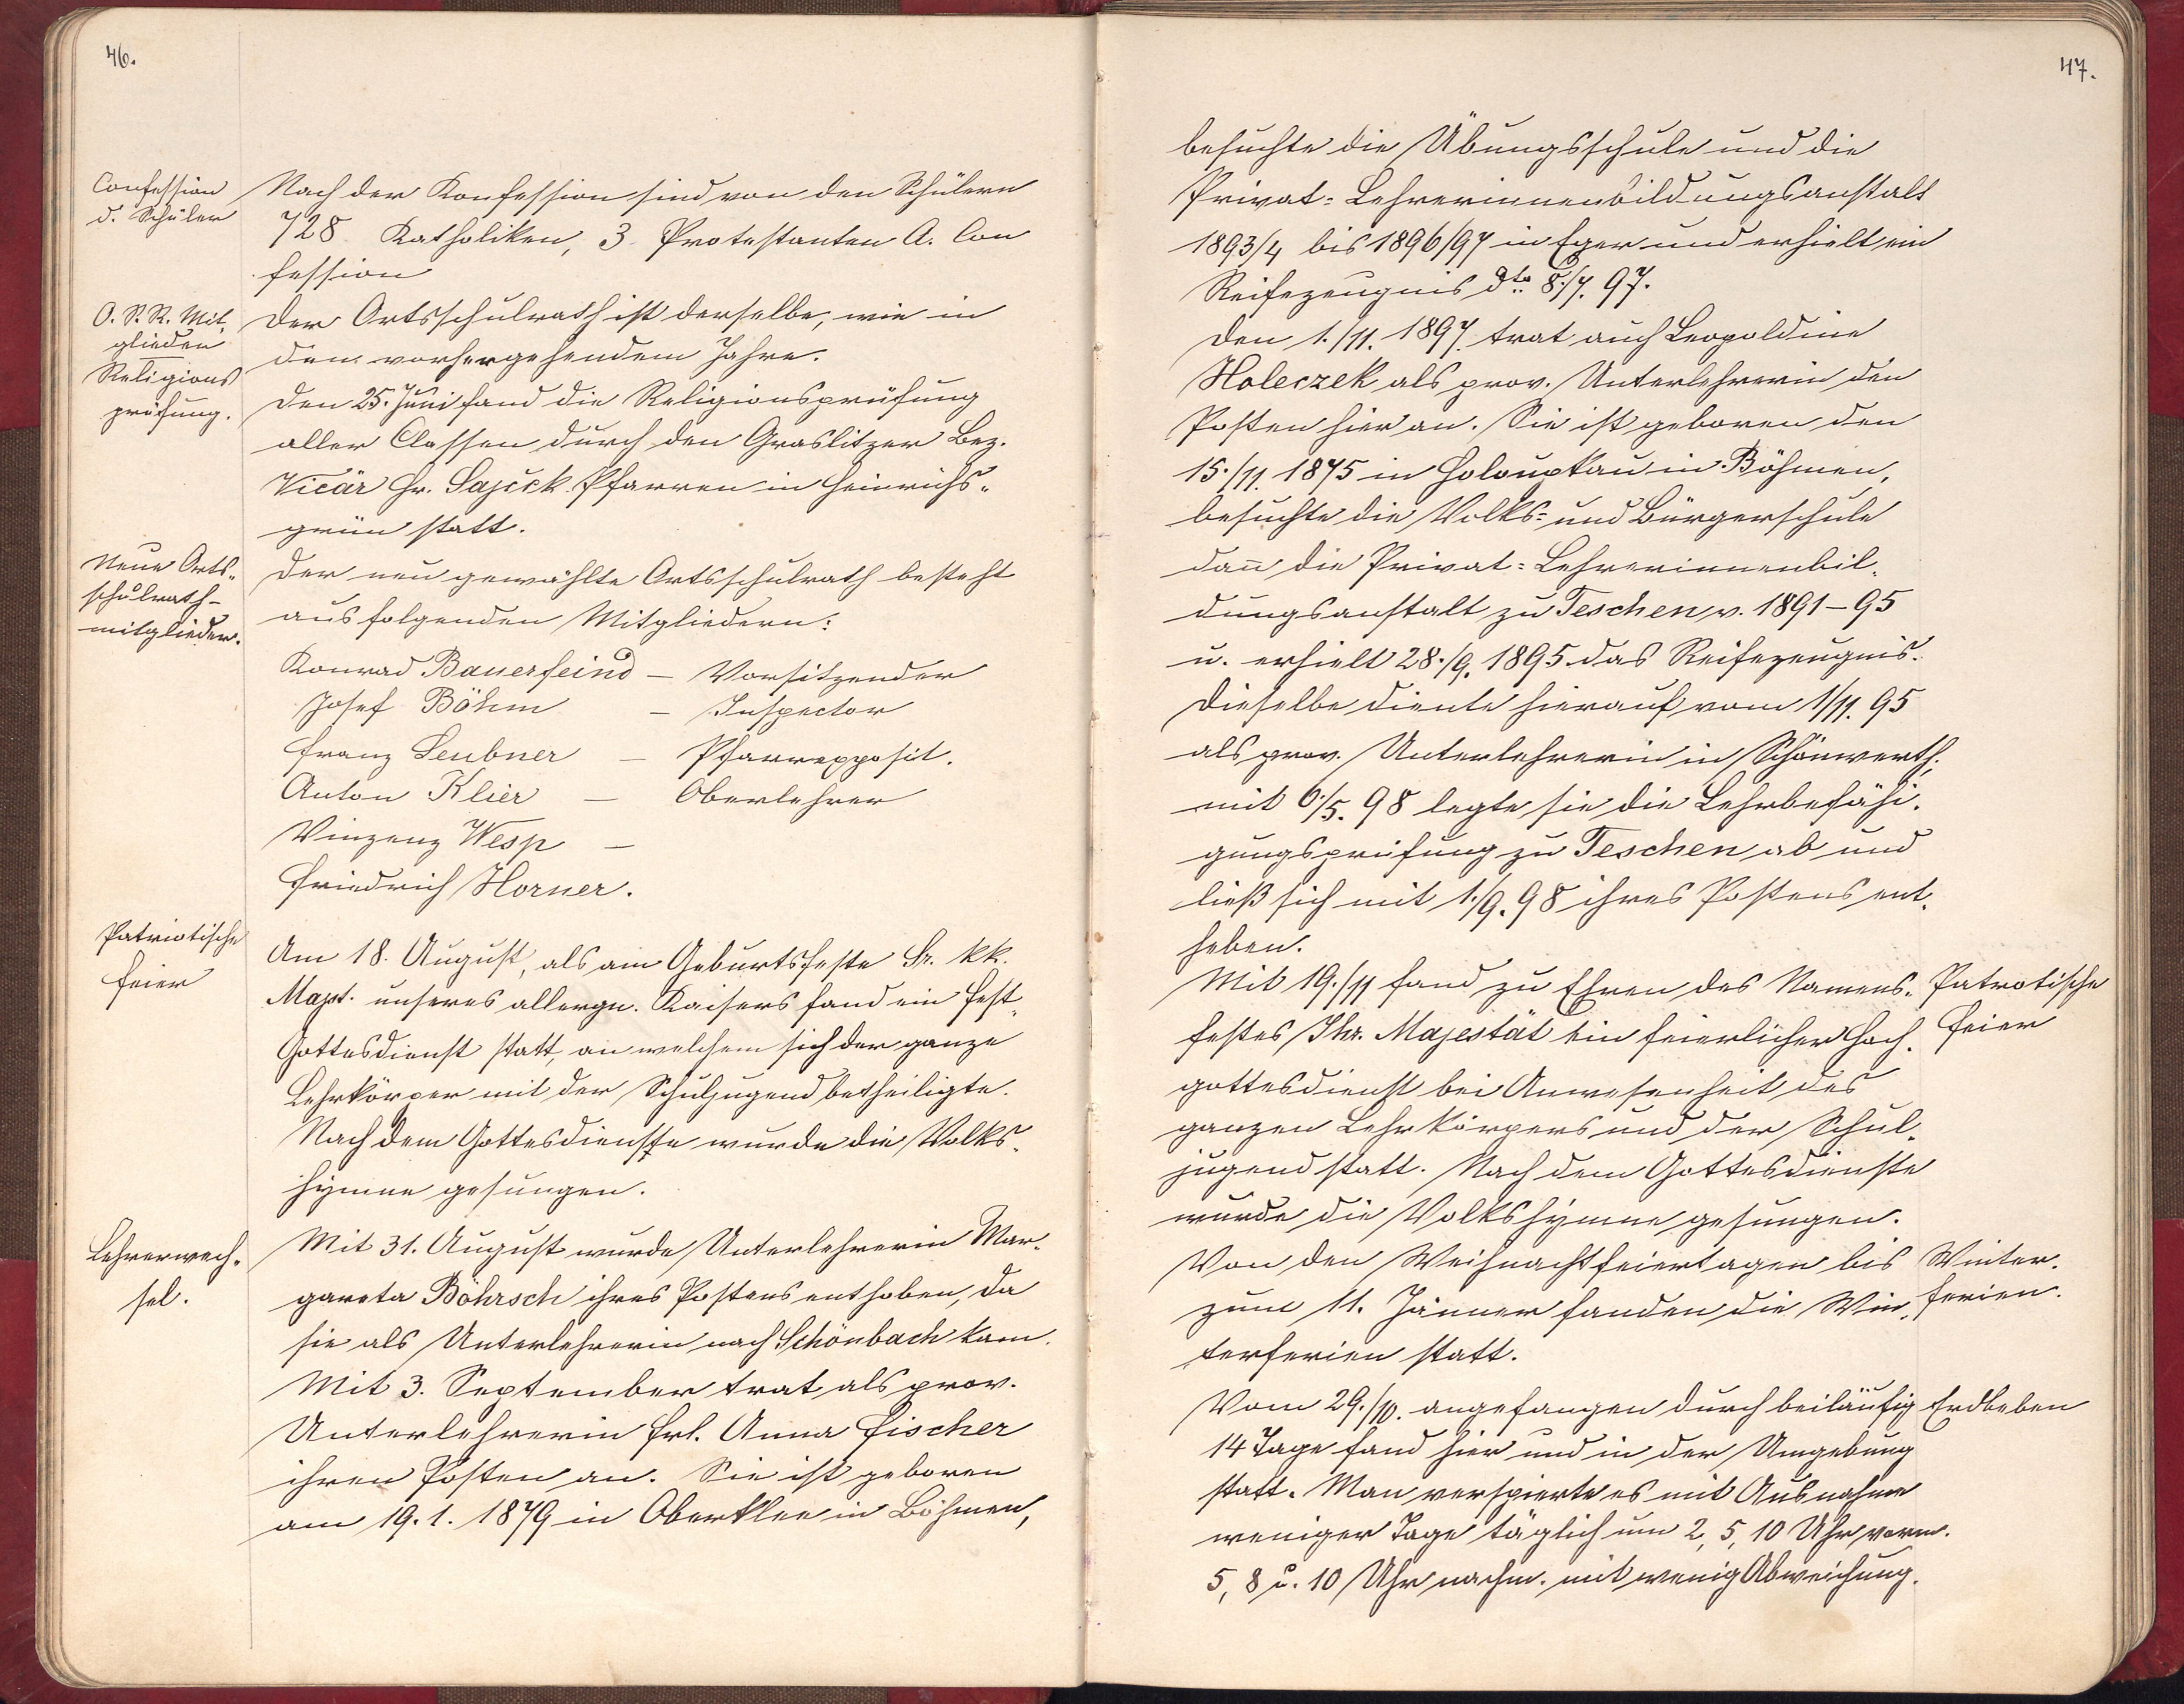 46.
Confession
d. Schüler
Nach der Konfession sind von den Schülern
728 Katholiken, 3 Protestanten A. Con
fession
O. S. R. Mit-
glieder
Der Ortsschulrath ist derselbe, wie in
dem vorhergehendem Jahre.
Religions
prüfung.
Den 25. Juni fand die Religionsprüfung
aller Classen durch den Graslitzer Bez.
Vicär Hr. Sajick Pfarrer in Heinrichs-
grün statt.
Neue Orts-
schulrath-
mitglieder.
Der neu gewählte Ortsschulrath besteht
aus folgenden Mitgliedern:
Konrad Bauerfeind – Vorsitzender
Josef Böhm – Inspector
Franz Leubner – Pfarrexposit.
Anton Klier – Oberlehrer
Vinzenz Wesp –
Friedrich Horner.
Patriotische
Feier
Am 18. August, als am Geburtsfeste Sr. kk.
Majst. unseres allergn. Kaisers fand ein Fest-
Gottesdienst statt, an welchem sich der ganze
Lehrkörper mit der Schuljugend betheiligte.
Nach dem Gottesdienste wurde die Volks-
hymne gesungen.
Lehrerwech-
sel.
Mit 31. August wurde Unterlehrerin Mar-
gareta Böhrsch ihres Postens enthoben, da
sie als Unterlehrerin nach Schönbach kam.
Mit 3. September trat als prov.
Unterlehrerin Frl. Anna Fischer
ihren Posten an. Sie ist geboren
am 19. 1. 1879 in Oberklee in Böhmen,
47.
besuchte die Übungsschule und die
Privat-Lehrerinnenbildungsanstalt
1893/4 bis 1896/97 in Eger und erhielt ein
Reifezeugnis dto 8./7. 97.
Den 1./11. 1897 trat auch Leopoldine
Holeczek als prov. Unterlehrerin den
Posten hier an. Sie ist geboren den
15./11. 1875 in Holoupkau in Böhmen,
besuchte die Volks- und Bürgerschule
dan̄ die Privat-Lehrerinnenbil-
dungsanstalt zu Teschen v. 1891–95
u. erhielt 28./9. 1895 das Reifezeugnis.
Dieselbe diente hierauf vom 1/11. 95
als prov. Unterlehrerin in Schönwerth.
mit 6./5. 98 legte sie die Lehrbefähi-
gungsprüfung zu Teschen ab und
ließ sich mit 1./9. 98 ihres Postens ent-
heben.
Mit 19./11 fand zu Ehren des Namens-
festes Ihr. Majestät ein feierlicher Hoch-
gottesdienst bei Anwesenheit des
ganzen Lehrkörpers und der Schul-
jugend statt. Nach dem Gottesdienste
wurde die Volkshymne gesungen.
Patrotische
Feier
Von den Weihnachtfeiertagen bis
zum 11. Jänner fanden die Win-
terferien statt.
Winter-
ferien.
Vom 29./10. angefangen durch beiläufig
14 Tage fand hier und in der Umgebung
statt. Man verspierte es mit Ausnahme
weniger Tage täglich um 2, 5, 10 Uhr vorm.
5, 8 u. 10 Uhr nachm. mit wenig Abweichung.
Erdbeben